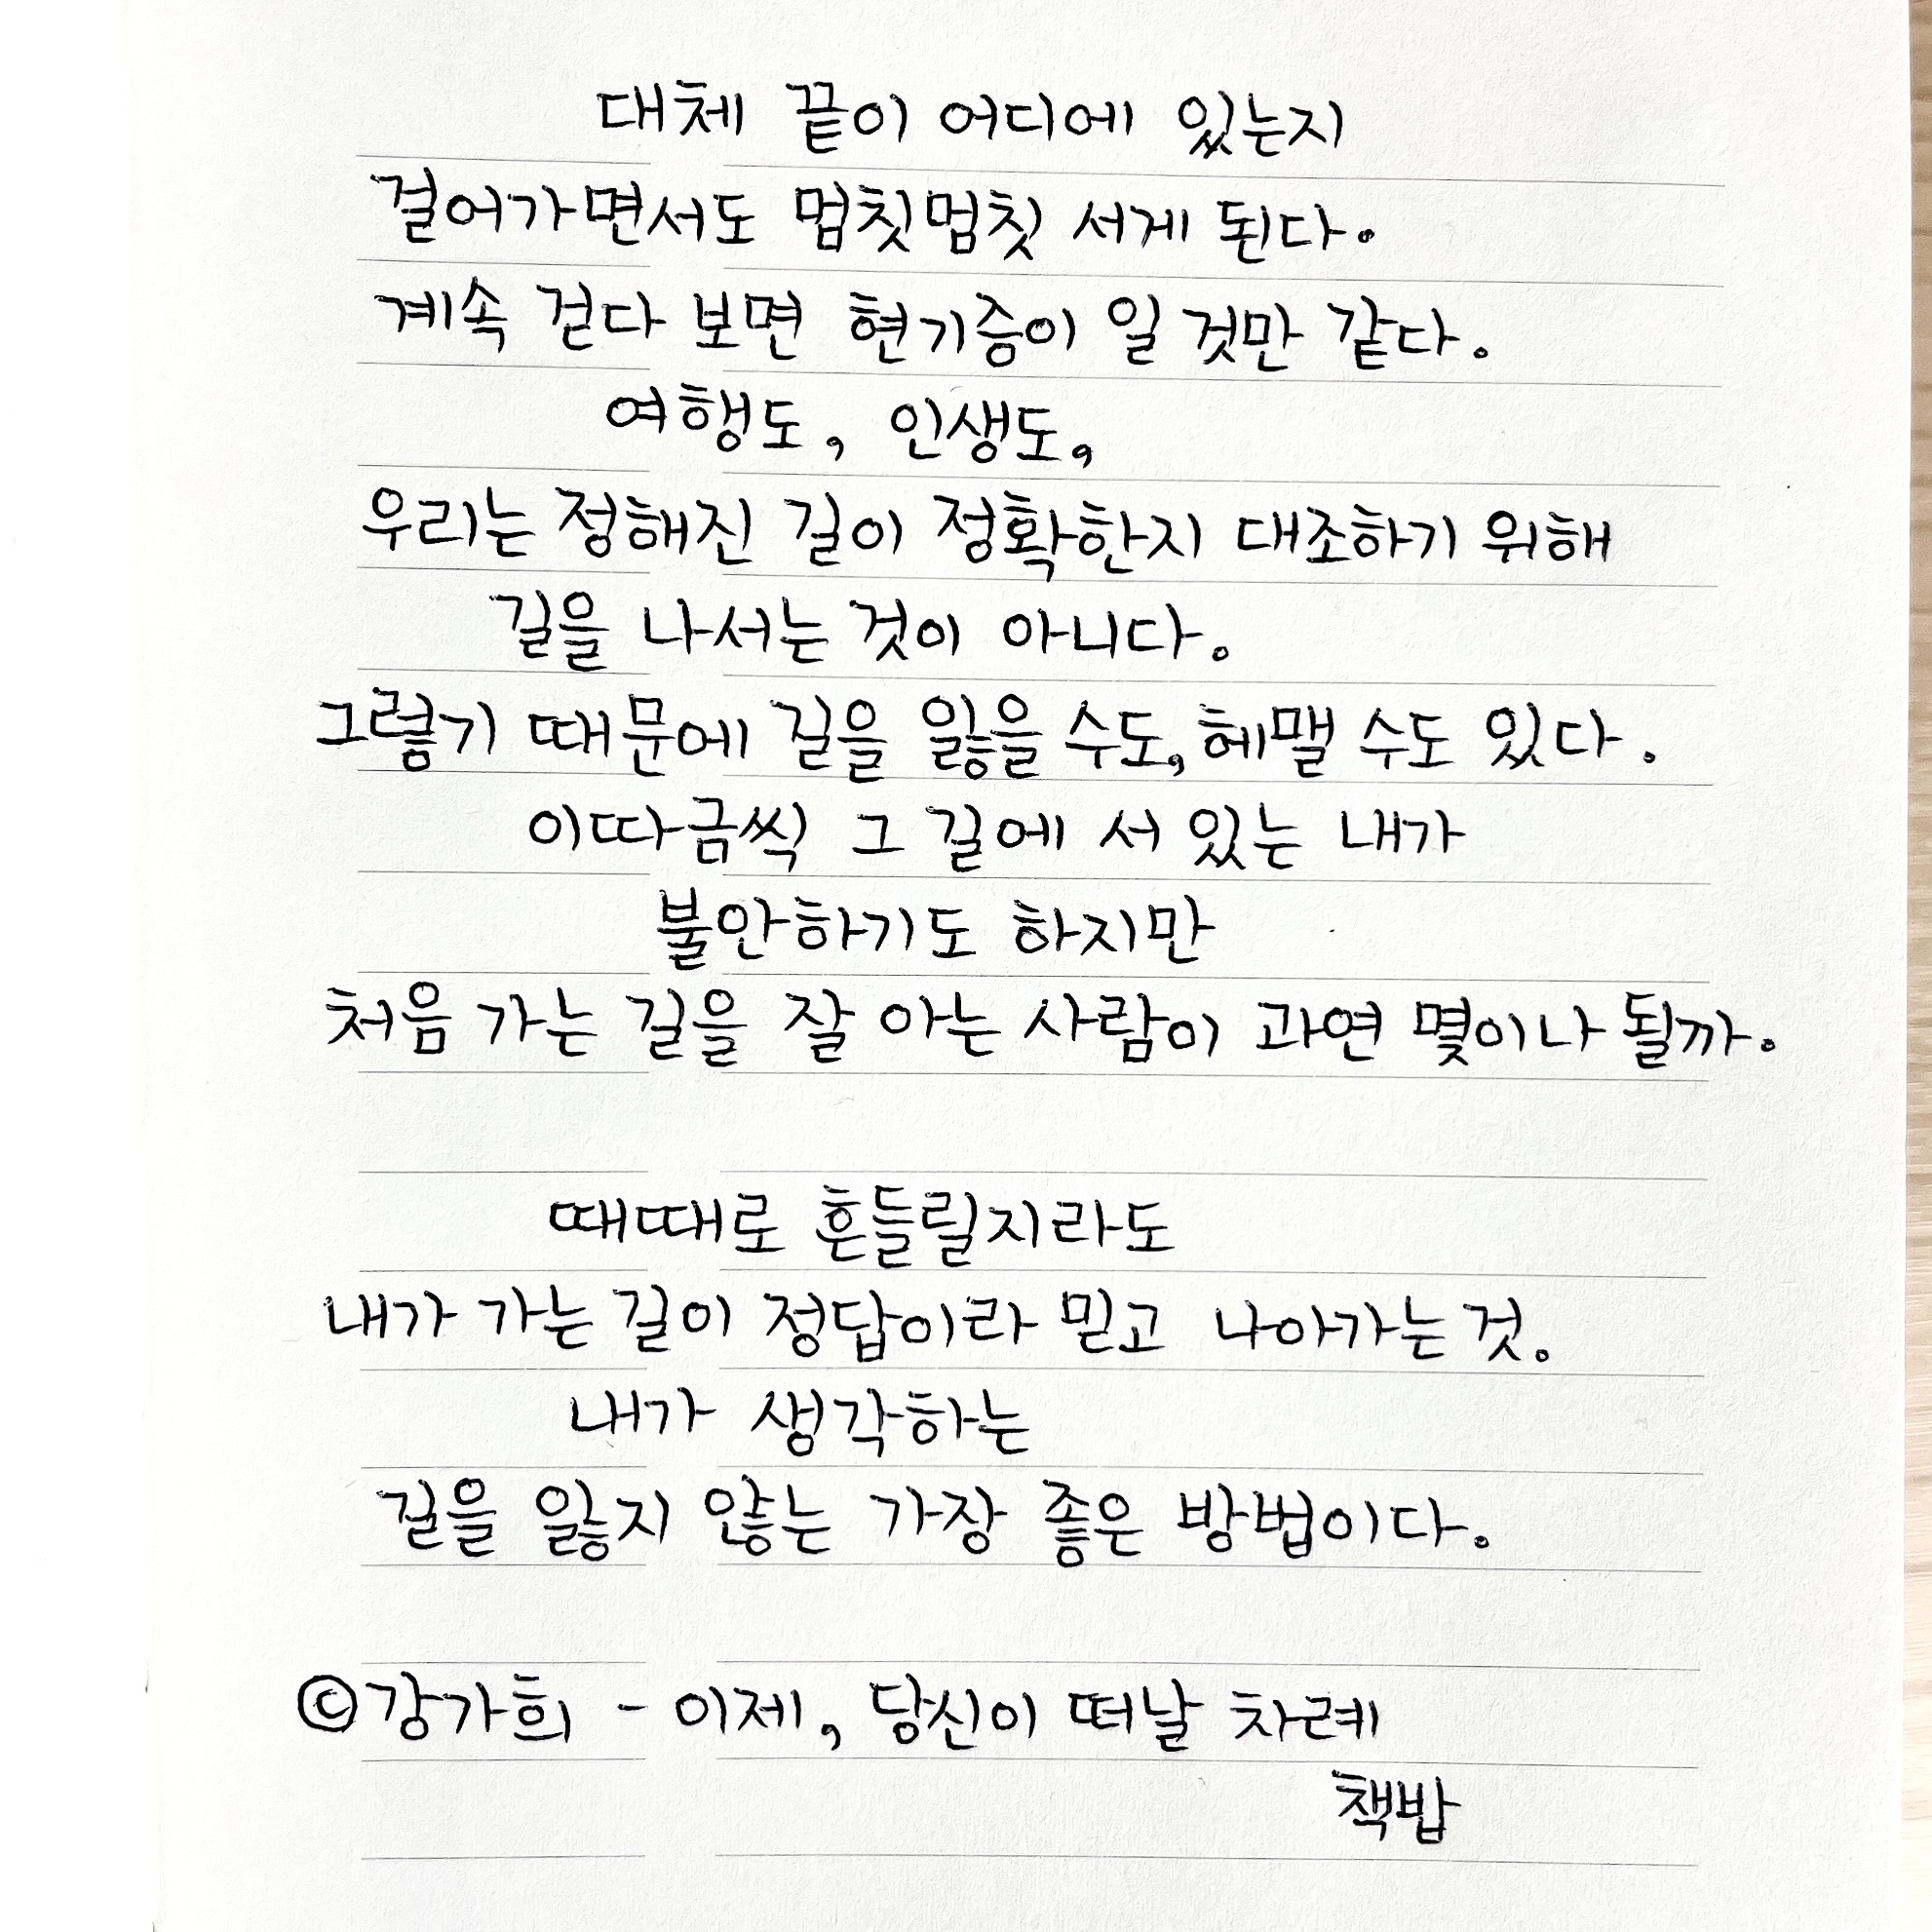 대체 끝이 어디에 있는지
걸어가면서도 멈칫멈칫 서게 된다.
계속 걷다 보면 현기증이 일 것만 같다.
여행도, 인생도,
우리는 정해진 길이 정확한지 대조하기 위해
길을 나서는 것이 아니다.
그렇기 때문에 길을 잃을 수도, 헤맬 수도 있다.
이따금씩 그 길에 서 있는 내가
불안하기도 하지만
처음 가는 길을 잘 아는 사람이 과연 몇이나 될까.
때때로 흔들릴지라도
내가 가는 길이 정답이라 믿고 나아가는 것.
내가 생각하는
길을 잃지 않는 가장 좋은 방법이다.
©강가희 - 이제, 당신이 떠날 차례
책밥